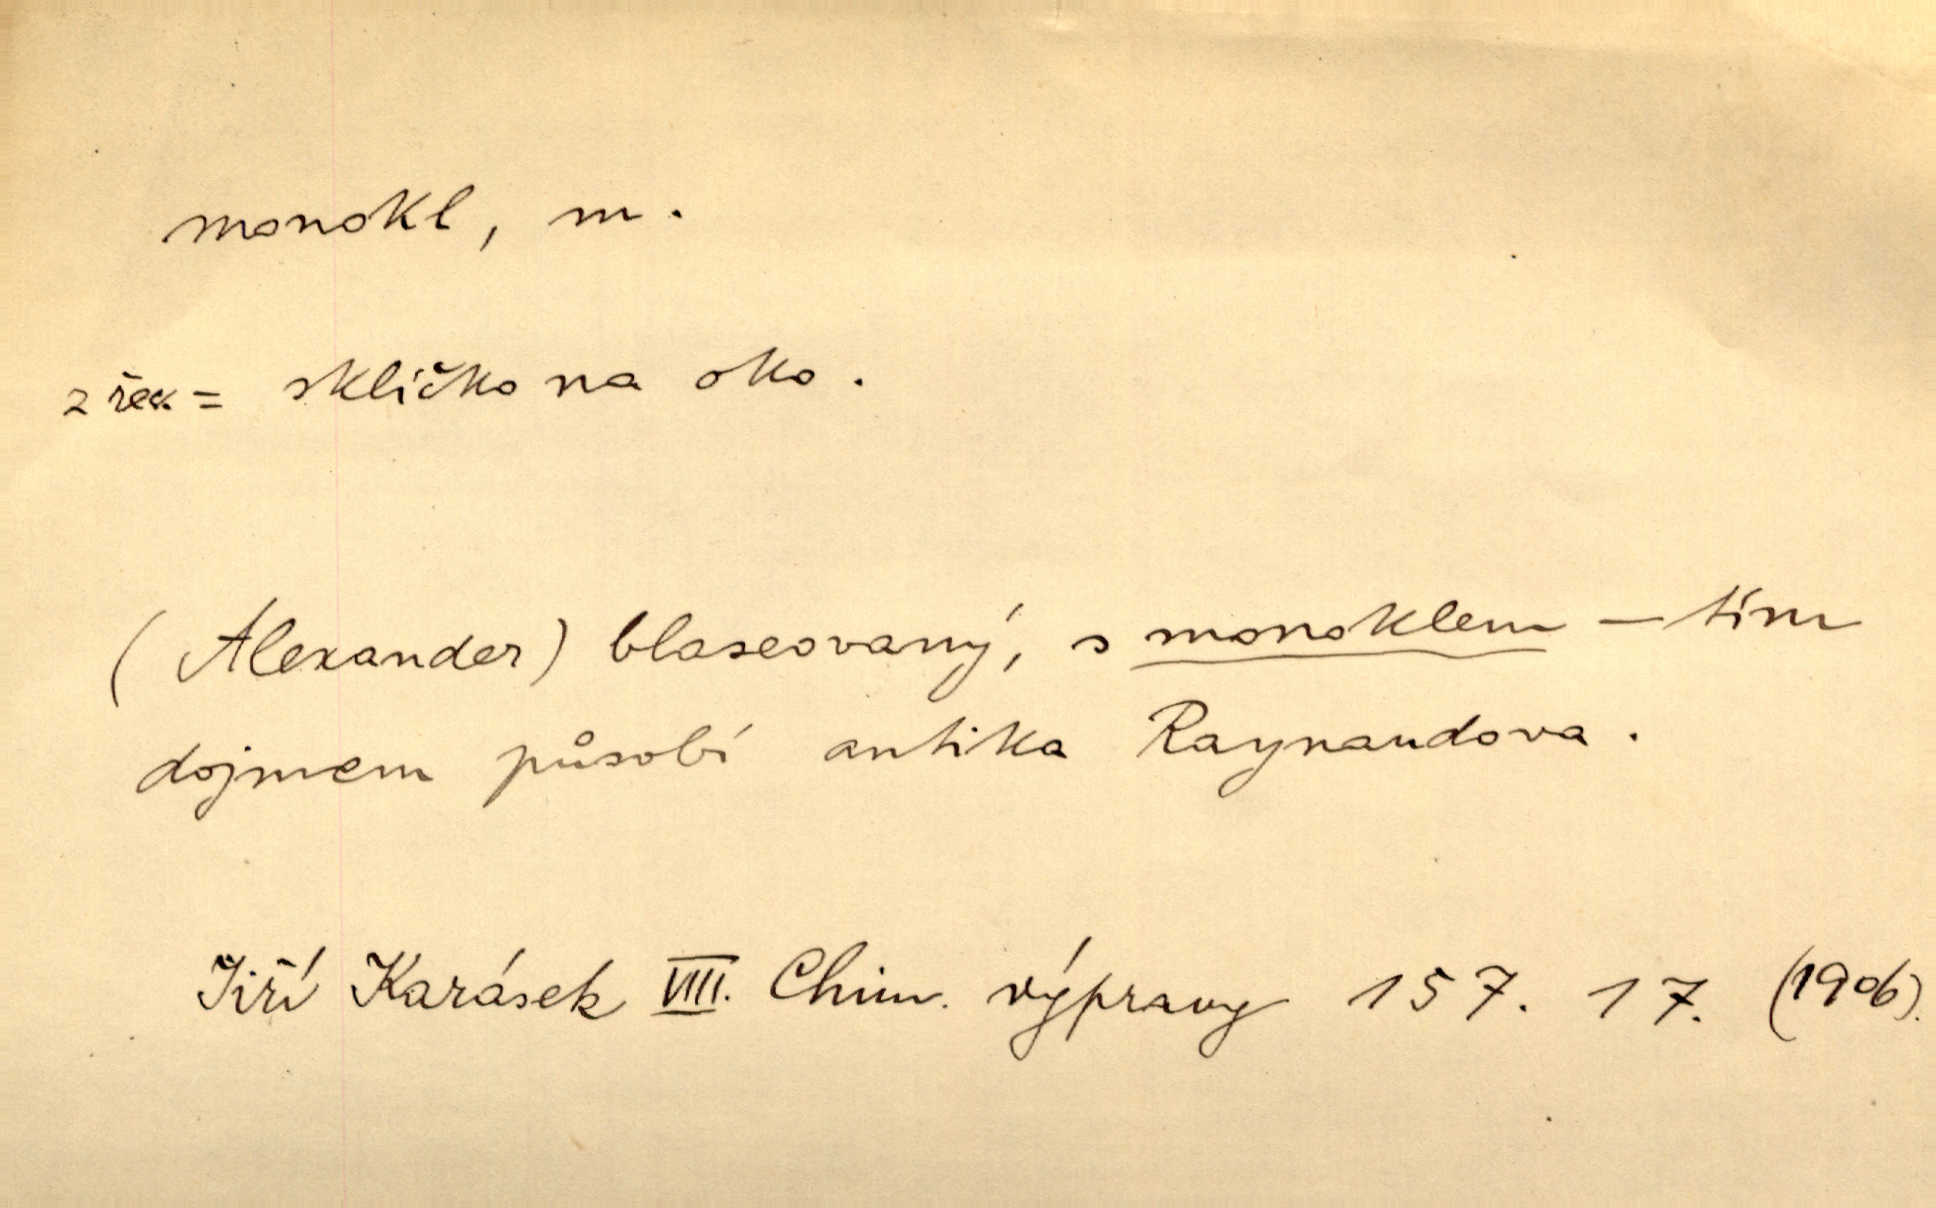 monokl, m.
z řec. = sklíčko na oko.
(Alexander) blaseovaný, s monoklem – tím
dojmem působí antika Raynaudova.
Jiří Karásek VIII. Chim. výpravy 157. 17. (1906).